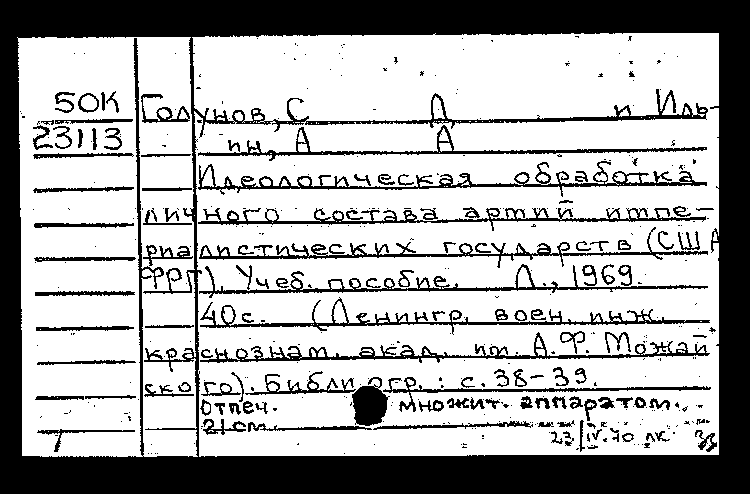 50К Голунов, С Д и Иль-
23113 ин, А А
Идеологическая обработка
личного состава артий импе-
риалистических государств (США
ФРГ). Учеб. пособие. Л., 1969.
40с. (Ленингр. воен. инж.
краснознам. акад. им. А.Ф. Можай-
ского). Библиогр.: с. 38-39.
отпеч. множит. аппаратом.
21см.
23/IV.70 лк